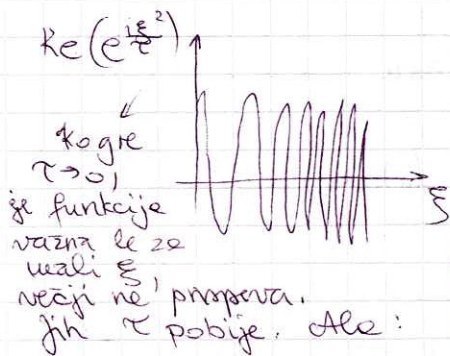 Re(e^{iξ²/τ})
Ko gre
τ→0,
je funkcija
važna le za
mali ξ,
večji ne prispeva.
Jih τ pobije. Ale:
ξ